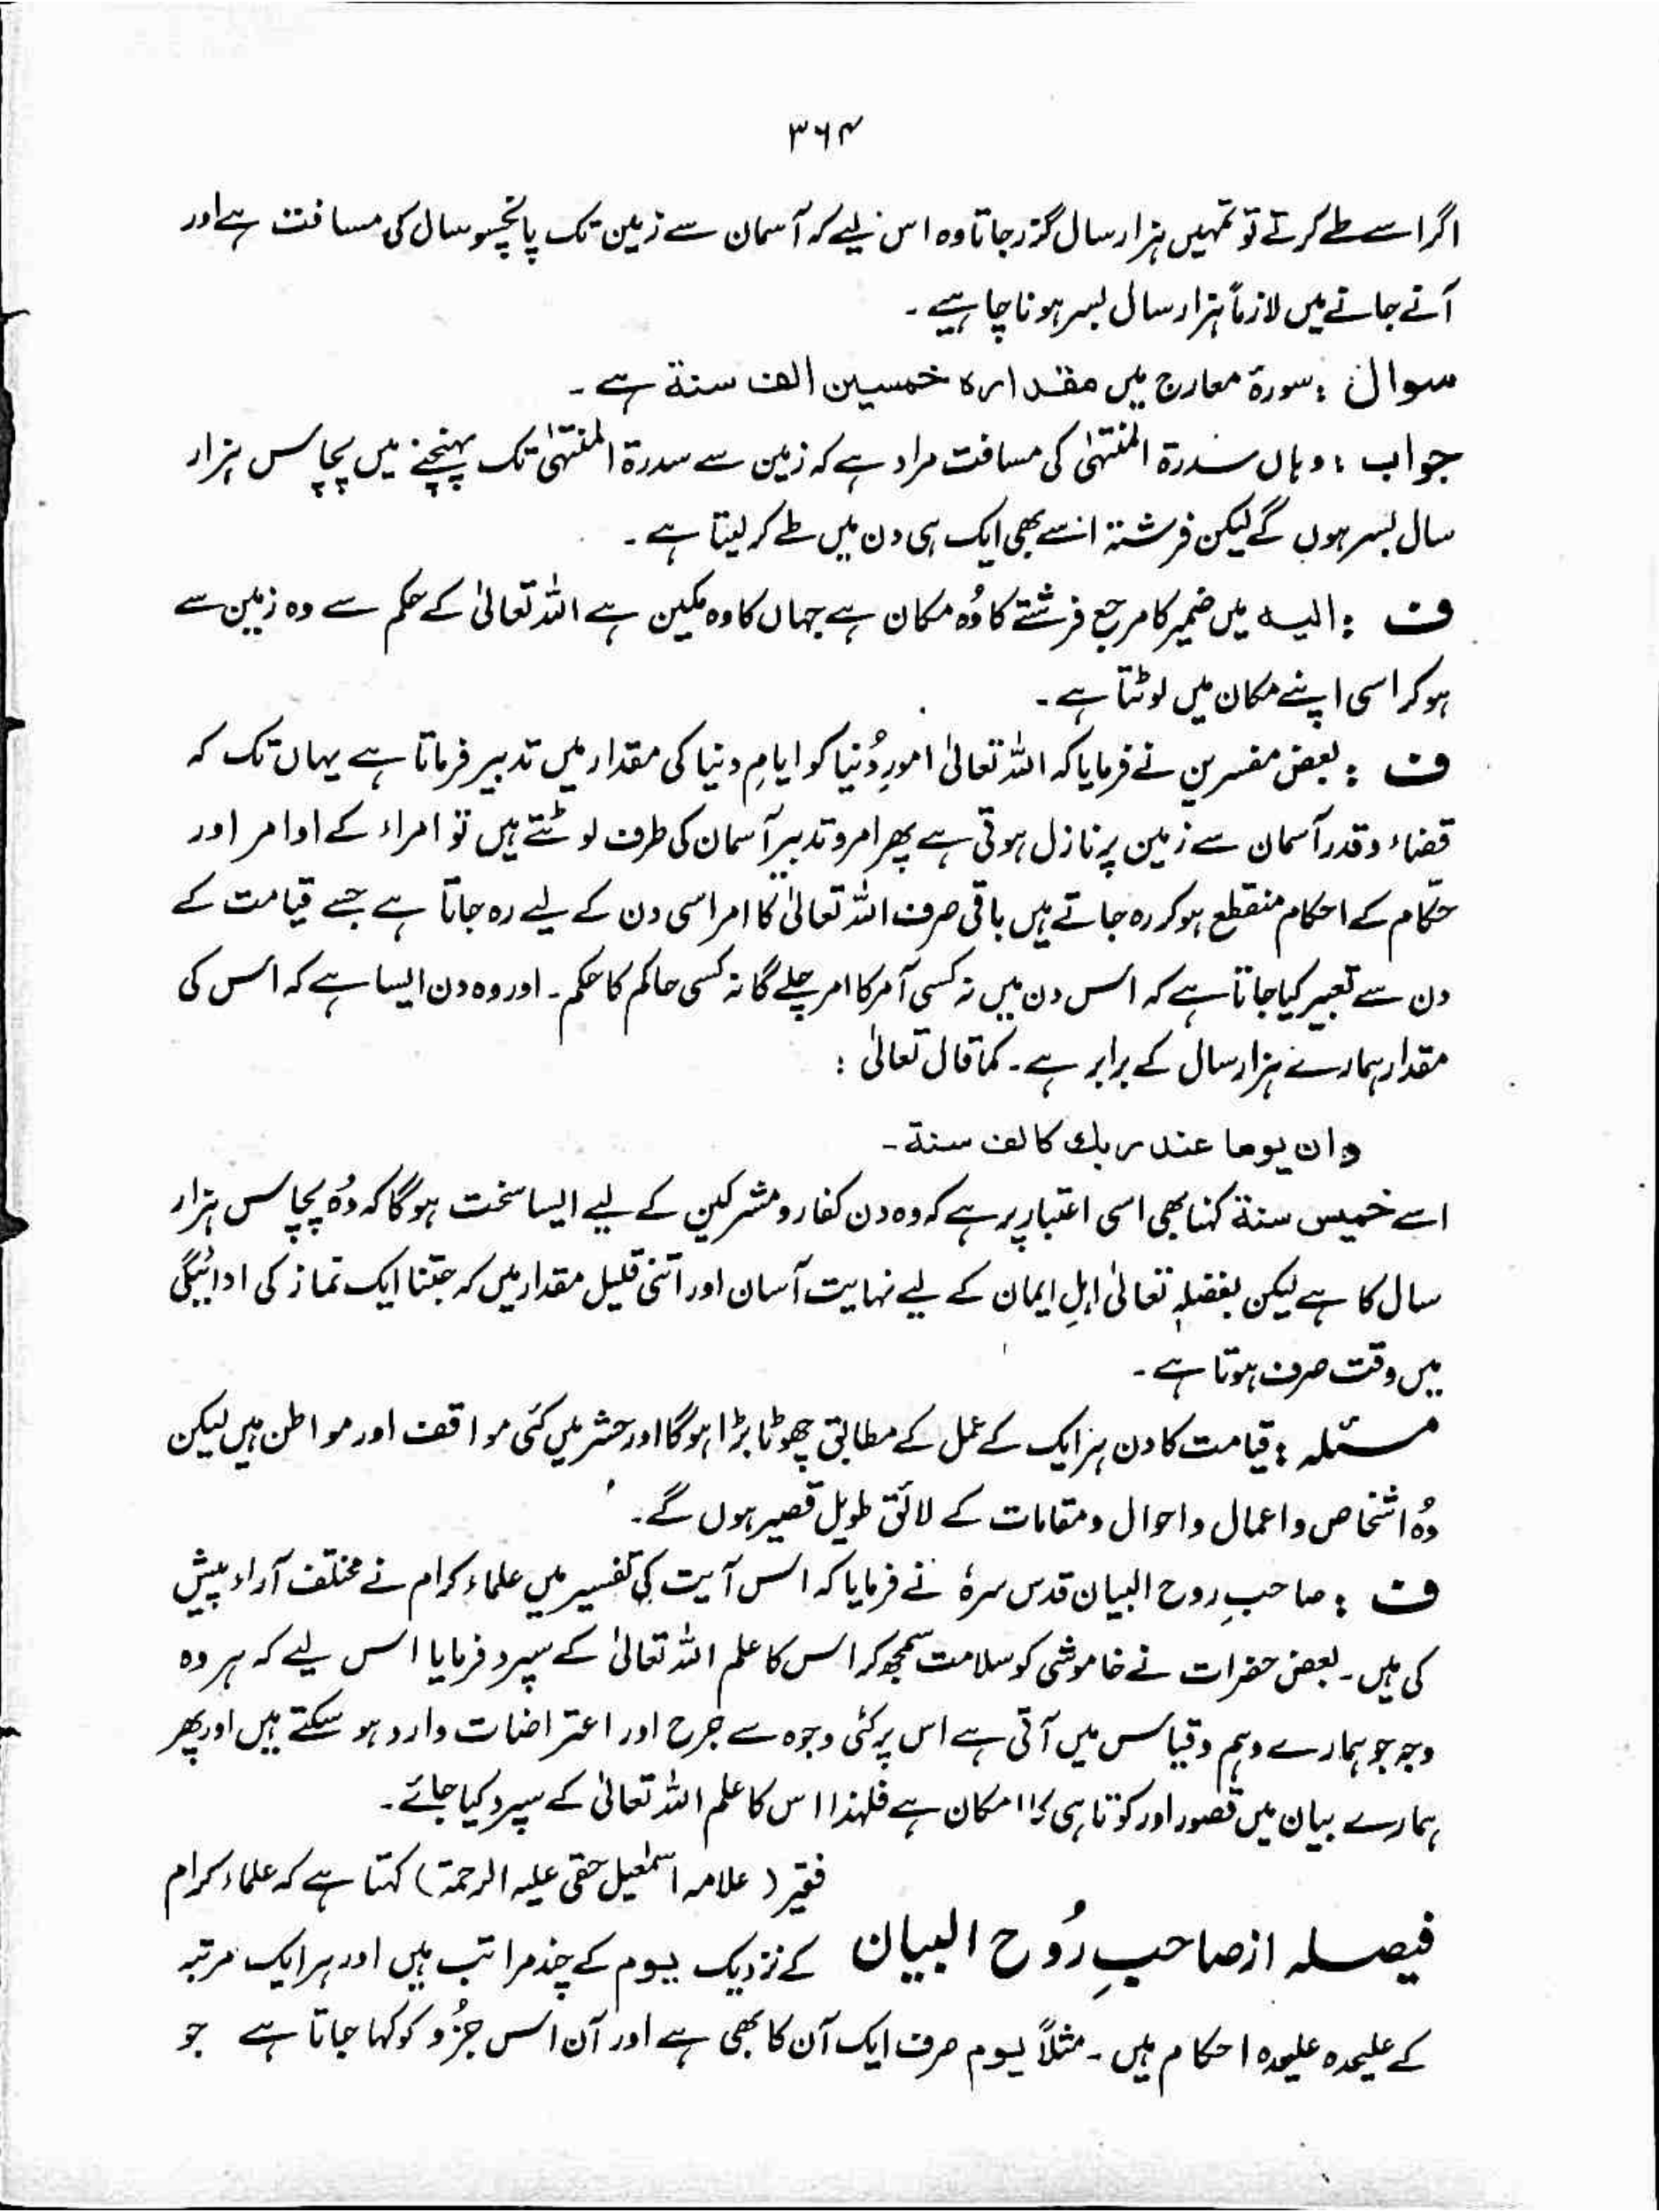 ۳۶۴
اگر اسے طے کرتے تو تمہیں ہزار سال گزر جاتا وہ اس لیے کہ آسمان سے زمین تک پانچسو سال کی مسافت ہے اور
آنے جانے میں لازماً ہزار سال بسر ہونا چاہیے ۔
سوال : سورۃ معارج میں مقدارہ خمسین الف سنۃ ہے ۔
جواب : وہاں سدرۃ المنتہیٰ کی مسافت مراد ہے کہ زمین سے سدرۃ المنتہیٰ تک پہنچنے میں پچاس ہزار
سال بسر ہوں گے لیکن فرشتہ اسے بھی ایک ہی دن میں طے کر لیتا ہے ۔
ف : الیہ میں ضمیر کا مرجع فرشتے کا وُہ مکان ہے جہاں کا وہ مکین ہے اللہ تعالیٰ کے حکم سے وہ زمین سے
ہو کر اسی اپنے مکان میں لوٹتا ہے ۔
ف : بعض مفسرین نے فرمایا کہ اللہ تعالیٰ امورِ دُنیا کو ایامِ دنیا کی مقدار میں تدبیر فرماتا ہے یہاں تک کہ
قضاء و قدر آسمان سے زمین پر نازل ہوتی ہے پھر امر و تدبیر آسمان کی طرف لوٹتے ہیں تو امراء کے اوامر اور
حکّام کے احکام منقطع ہو کر رہ جاتے ہیں باقی صرف اللہ تعالیٰ کا امر اسی دن کے لیے رہ جاتا ہے جسے قیامت کے
دن سے تعبیر کیا جاتا ہے کہ اس دن میں نہ کسی آمر کا امر چلے گا نہ کسی حاکم کا حکم ۔ اور وہ دن ایسا ہے کہ اس کی
مقدار ہمارے ہزار سال کے برابر ہے ۔ کما قال تعالیٰ :
وان یوما عند ربك کالف سنة ۔
اسے خمیس سنۃ کہنا بھی اسی اعتبار پر ہے کہ وہ دن کفار و مشرکین کے لیے ایسا سخت ہوگا کہ وُہ پچاس ہزار
سال کا ہے لیکن بفضلہٖ تعالیٰ اہلِ ایمان کے لیے نہایت آسان اور اتنی قلیل مقدار میں کہ جتنا ایک نماز کی ادائیگی
میں وقت صرف ہوتا ہے ۔
مسئلہ : قیامت کا دن ہر ایک کے عمل کے مطابق چھوٹا بڑا ہوگا اور حشر میں کئی مواقف اور مواطن ہیں لیکن
وُہ اشخاص و اعمال و احوال و مقامات کے لائق طویل قصیر ہوں گے ۔
ف : صاحبِ روح البیان قدس سرہٗ نے فرمایا کہ اس آیت کی تفسیر میں علماء کرام نے مختلف آراء پیش
کی ہیں ۔ بعض حضرات نے خاموشی کو سلامت سمجھ کر اس کا علم اللہ تعالیٰ کے سپرد فرمایا اس لیے کہ ہر وہ
وجہ جو ہمارے وہم و قیاس میں آتی ہے اس پر کئی وجوہ سے جرح اور اعتراضات وارد ہو سکتے ہیں اور پھر
ہمارے بیان میں قصور اور کوتاہی کا امکان ہے فلہذا اس کا علم اللہ تعالیٰ کے سپرد کیا جائے ۔
فیصلہ از صاحبِ رُوح البیان
فقیر ( علامہ اسمٰعیل حقی علیہ الرحمۃ ) کہتا ہے کہ علماء کرام
کے نزدیک یوم کے چند مراتب ہیں اور ہر ایک مرتبہ
کے علیحدہ علیحدہ احکام ہیں ۔ مثلاً یوم صرف ایک آن کا بھی ہے اور آن اس جزُو کو کہا جاتا ہے جو